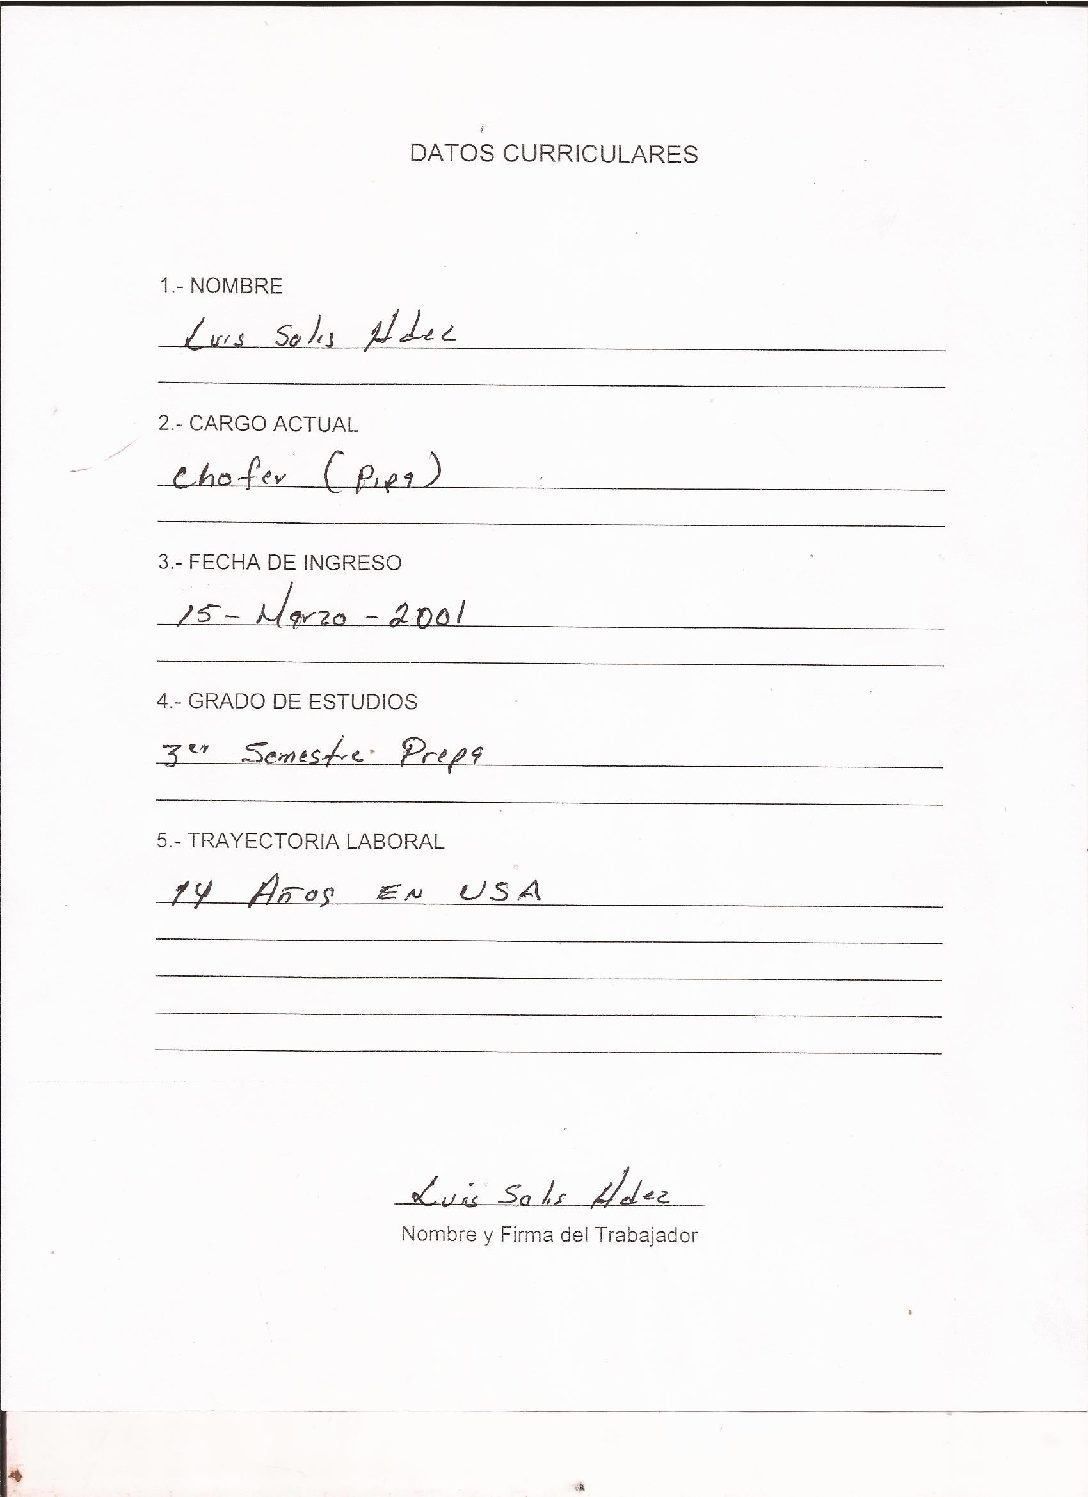 DATOS CURRICULARES
1.- NOMBRE
Luis Solis Hdez
2.- CARGO ACTUAL
Chofer (Pipa)
3.- FECHA DE INGRESO
15 - Marzo - 2001
4.- GRADO DE ESTUDIOS
3er Semestre Prepa
5.- TRAYECTORIA LABORAL
14 Años EN USA
Luis Solis Hdez
Nombre y Firma del Trabajador